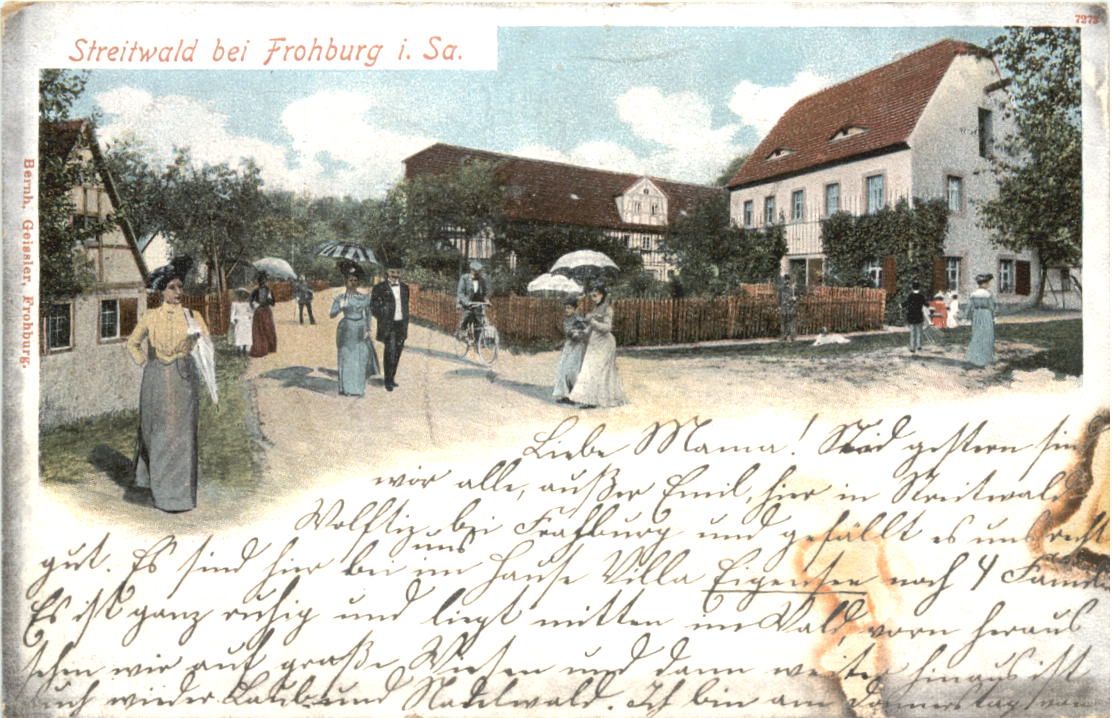 7273
Streitwald bei Frohburg i. Sa.
Bernh. Geissler, Frohburg.
Liebe Mama! Seid gestern sin
wir alle, außer Emil, hier in Streitwald
Wolftiz bei Frohburg und gefällt es uns recht
gut. Es sind hier bei uns im Hause Villa Eigensee noch 4 Fami
Es ist ganz ruhig und liegt mitten im Wald vorn heraus
sehn wir auf große Wiesen und dann weiter hinaus ist
auch wieder Laub- und Nadelwald. Ich bin am Donnerstag von